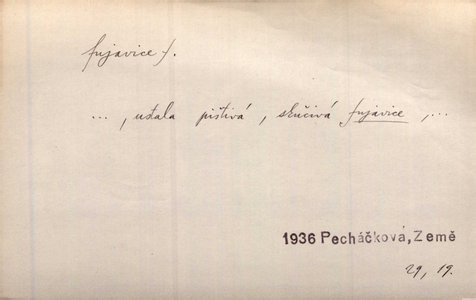 fujavice f.
..., ustala pištivá, skučivá fujavice, ...
1936 Pecháčková, Země
29, 19.